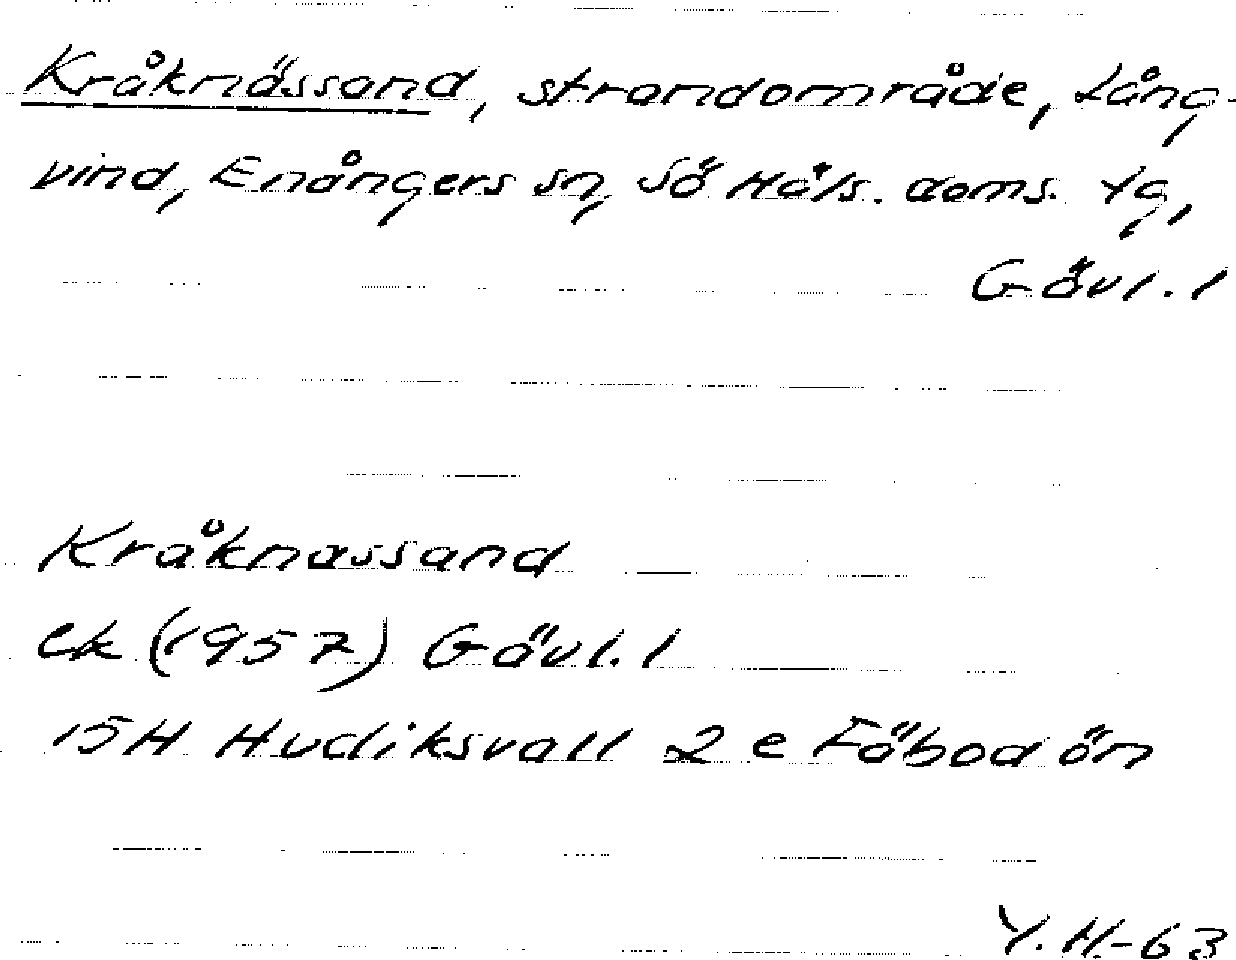 Kråknässand, strandområde, Lång-
vind, Enångers sn, Sö Häls. doms. tg,
Gävl. l
Kråknassand
ek (1957) Gävl. l
15H Hudiksvall 2 e Fäbodön
Y. H.-63